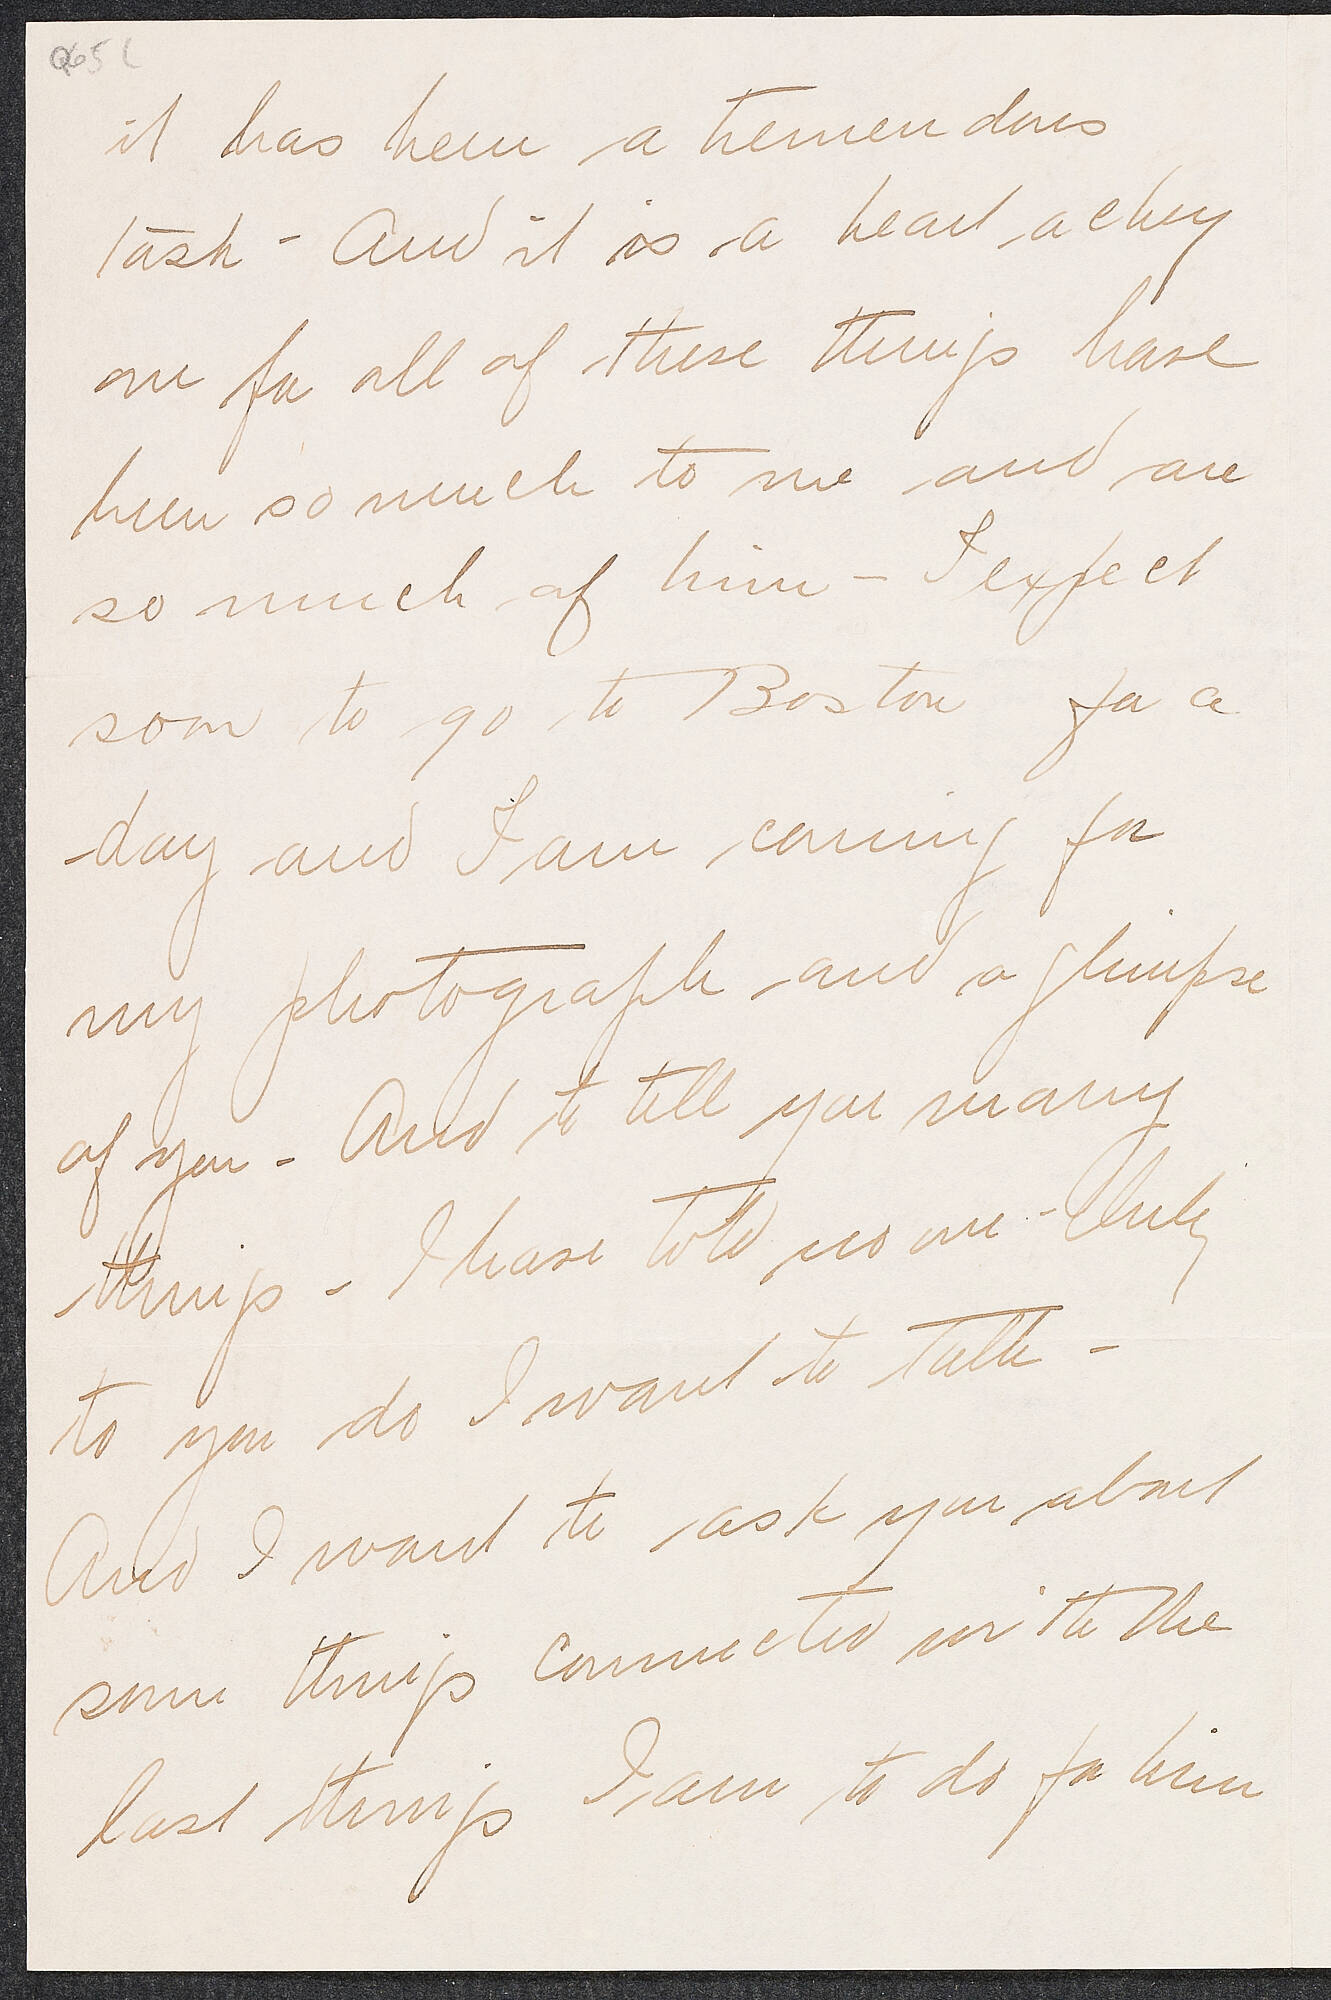 Q65 L
it has been a tremendous
task - And it is a heart achey
one for all of these things have
been so much to me and are
so much of him - I expect
soon to go to Boston for a
day and I am coming for
my photograph and a glimpse
of you - And to tell you many
things - I have told no one - Only
to you do I want to talk -
And I want to ask you about
some things connected with the
last things I am to do for him